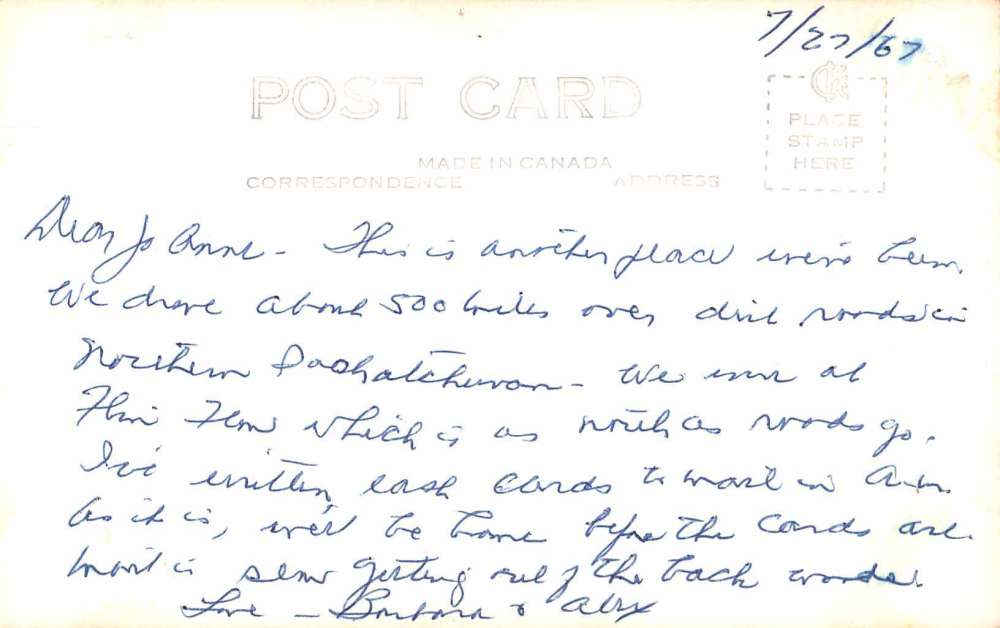 7/27/67
POST CARD
PLACE
STAMP
HERE
MADE IN CANADA
CORRESPONDENCE ADDRESS
Dear Jo Anne - This is another place we've been.
We drove about 500 miles over dirt roads in
Northern Saskatchewan - We were at
Flin Flon which is as north as roads go.
I've written cards to mail in
As it is, we'll be home before the cards are.
Mail is slow getting out of the back woods.
Love - Barbara & Alex